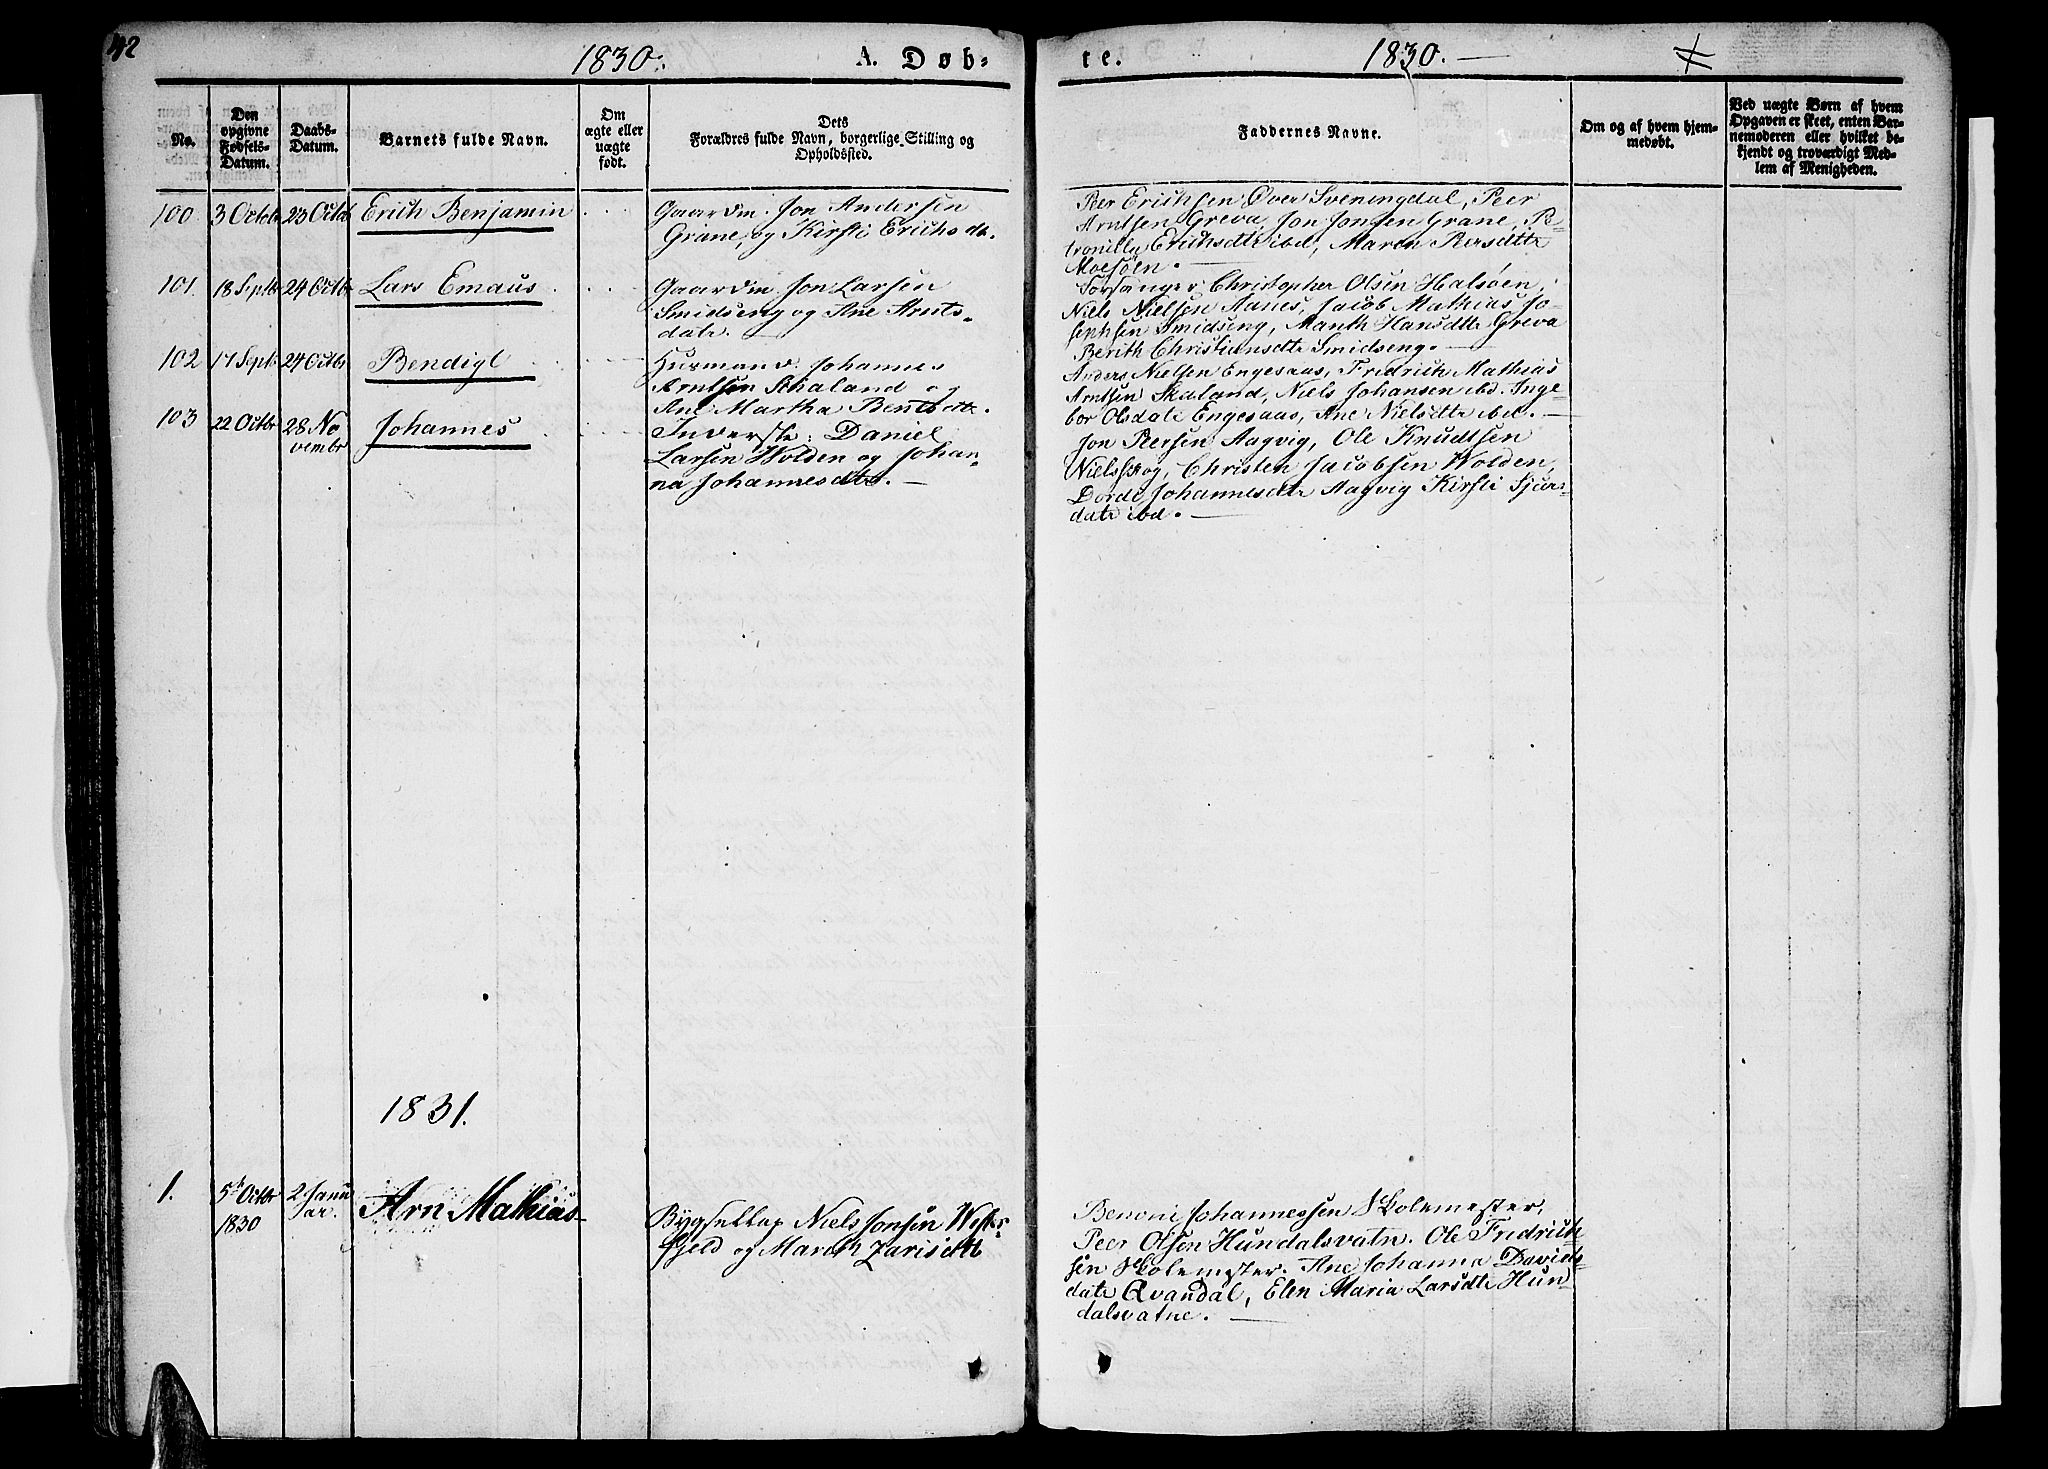 42
1830.
A. Døb-
te.
1830. —
No.
Den
opgivne
Fødsels-
Datum.
Daabs-
Datum.
Barnets fulde Navn.
Om
ægte eller
uægte
født.
Dets
Forældres fulde Navn, borgerlige Stilling og
Opholdssted.
Faddernes Navne.
Om og af hvem hjem-
medøbt.
Ved uægte Børn af hvem
Opgaven er skeet, enten Bar-
nemoderen eller hvilket be-
kjendt og troværdigt Med-
lem af Menigheden.
100. 3 Octobr 23 Octob Erich Benjamin
Gaardm. Jon Andersen
Grane, og Kirsti Erichsdt.
Peer Erichsen Øver Sveningdal, Peer
Arntsen Greva, Jon Jonsen Grane, Pe-
tronilla Erichsdtr ibd, Maren Persdtr
Moesøen.
101. 18 Septbr 24 Octbr Lars Emaus
Gaardm. Jon Larsen
Smidseng og Ane Arnts-
datr.
Forsanger Christopher Olsen Halsøen,
Niels Nielsen Aanes, Jacob Mathias Jo-
sephsen Smidseng, Marith Hansdtr Greva
Berith Christiansdtr Smidseng. —
102 17 Septr 24 Octbr Bendigt
Husmand. Johannes
Arntsen Skaland og
Ane Martha Bentsdtr.
Anders Nielsen Engesaas, Fridrich Mathias
Arntsen Skaland, Niels Johansen ibd. Inge-
bor Olsdatr Engesaas, Ane Nielsdtr ibd. —
103 22 Octbr 28 No
vembr Johannes
Inderste: Daniel
Larsen Wolden og Johan-
na Johannesdtr. —
Jon Peersen Aagvig, Ole Knudtsen
Nielsskog, Christen Jacobsen Wolden,
Dorde Johannesdtr Aagvig Kirsti Sjurs-
datr ibd. —
1831.
1. 5t Octbr
1830
2 Janu
ar.
Arn Mathias
Bygselkap Niels Jonsen Wester-
fjeld og Mareth Zarisdtr
Benoni Johannessen Skolemester,
Peer Olsen Hundalsvatn. Ole Fridrich-
sen Skolemester. Ane Johanna Davids-
datr Qvandal, Elen Maria Larsdtr Hun-
dalsvatne. —